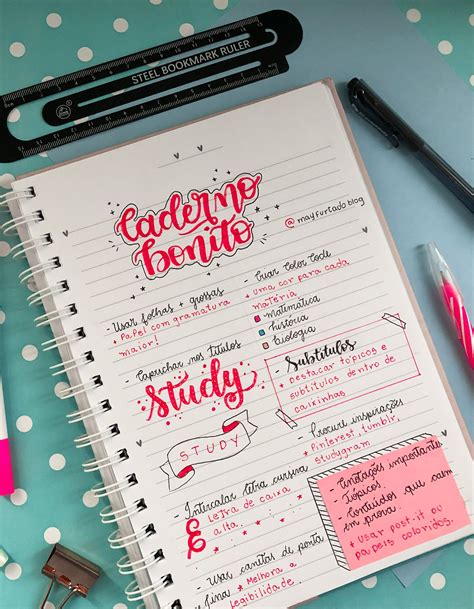 STEEL BOOKMARK RULER
Caderno
bonito
@mayfurtadoblog
- Usar folhas + grossas
+ Papel com gramatura
maior!
- Criar Color Code
+ uma cor para cada
matéria
matemática
história
biologia
- Caprichar nos títulos
Study
- Subtítulos
+ Destacar tópicos e
subtítulos dentro de
caixinhas
STUDY
- Procure inspirações
+ Pinterest, tumblr,
studygram
- Intercalar letra cursiva
E Letra de caixa
alta.
- Anotações importantes
- Tópicos.
- Conteúdos que caem
em prova.
+ Usar post.it ou
papéis coloridos.
- Usar canetas de ponta
fina + Melhora a
legibilidade.